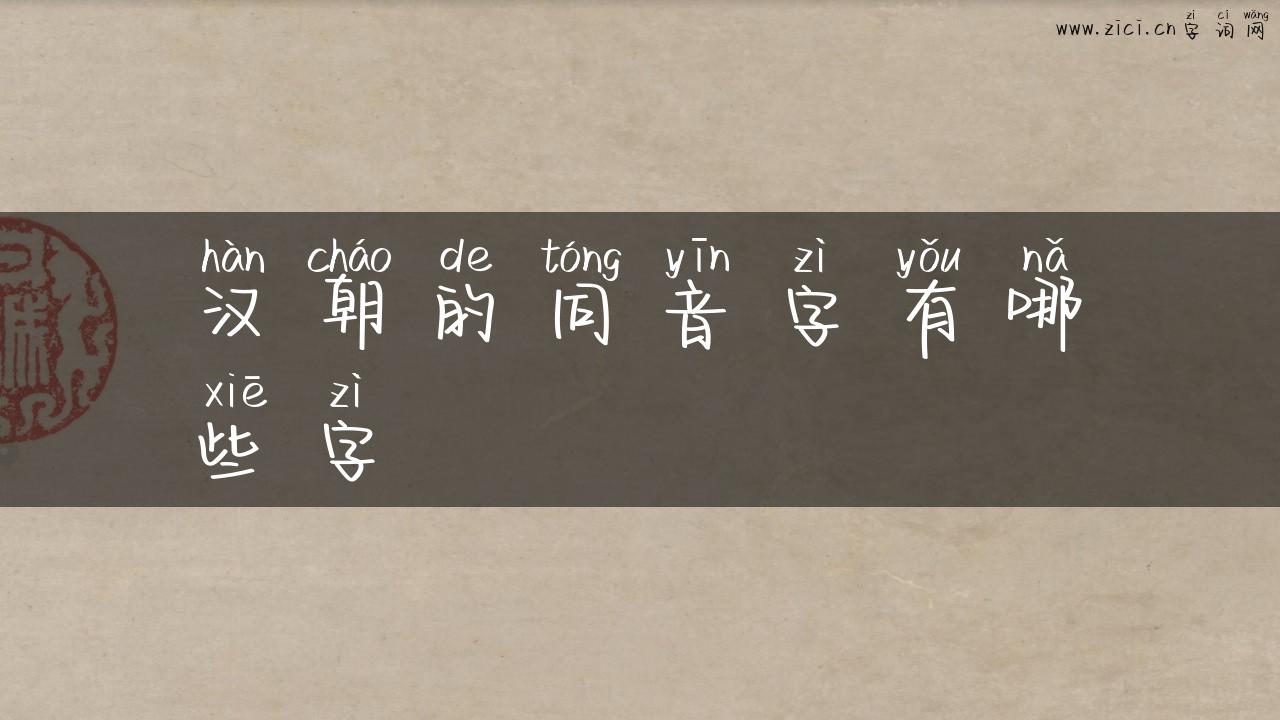 zì cí wǎng
www.zici.cn字词网
hàn cháo de tóng yīn zì yǒu nǎ
汉朝的同音字有哪
xiē zì
些字